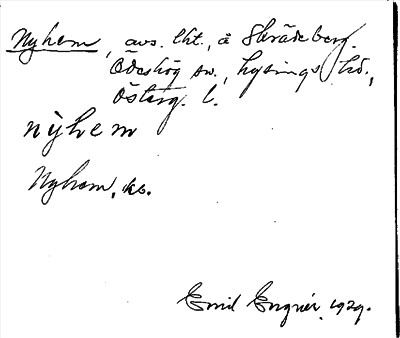 Nyhem, avs. lht., å Skrädeberg.
Ödeshög sn., Lysings hd.,
Österg. l.
nỳhem
Nyhem, ks.
Emil Engnér, 1929.